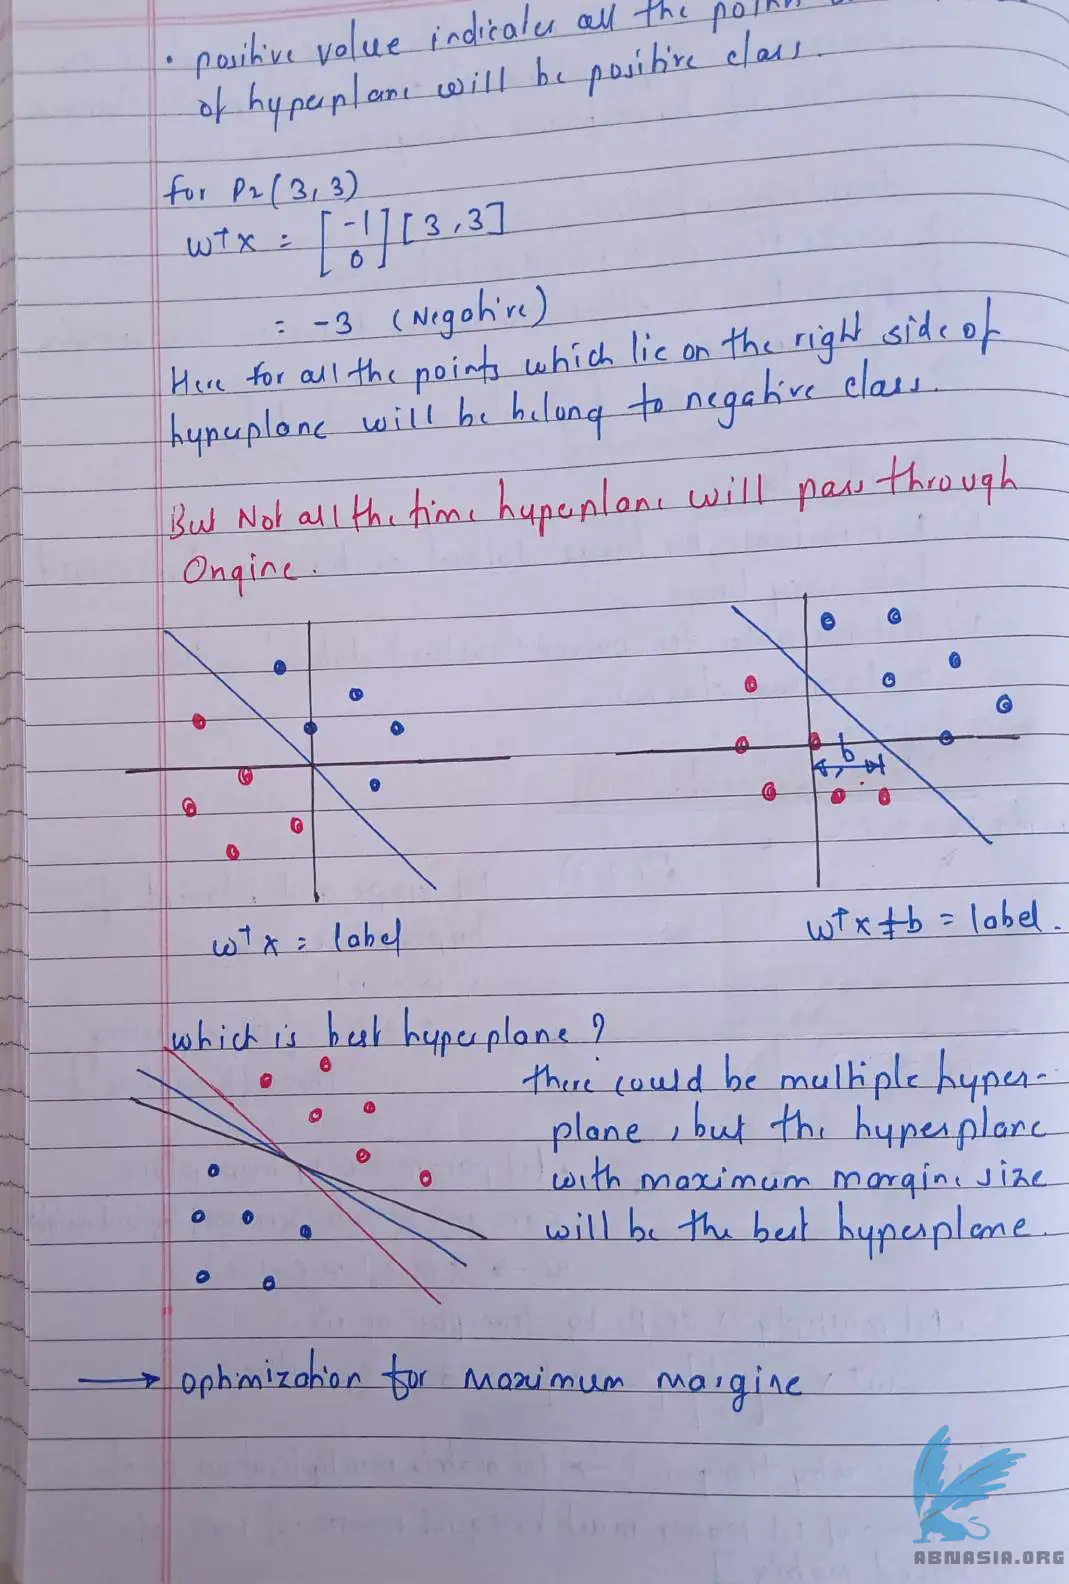 • positive value indicates all the points
of hyperplane will be positive class.
for P2 (3, 3)
wᵀx = [-1 0] [3, 3]
= -3 (Negative)
Here for all the points which lie on the right side of
hyperplane will be belong to negative class.
But Not all the time hyperplane will pass through
Origine.
b
wᵀx = label
wᵀx ± b = label.
which is best hyperplane?
there could be multiple hyper-
plane, but the hyperplane
with maximum margine size
will be the best hyperplane.
→ optimization for Maximum margine
ABNASIA.ORG